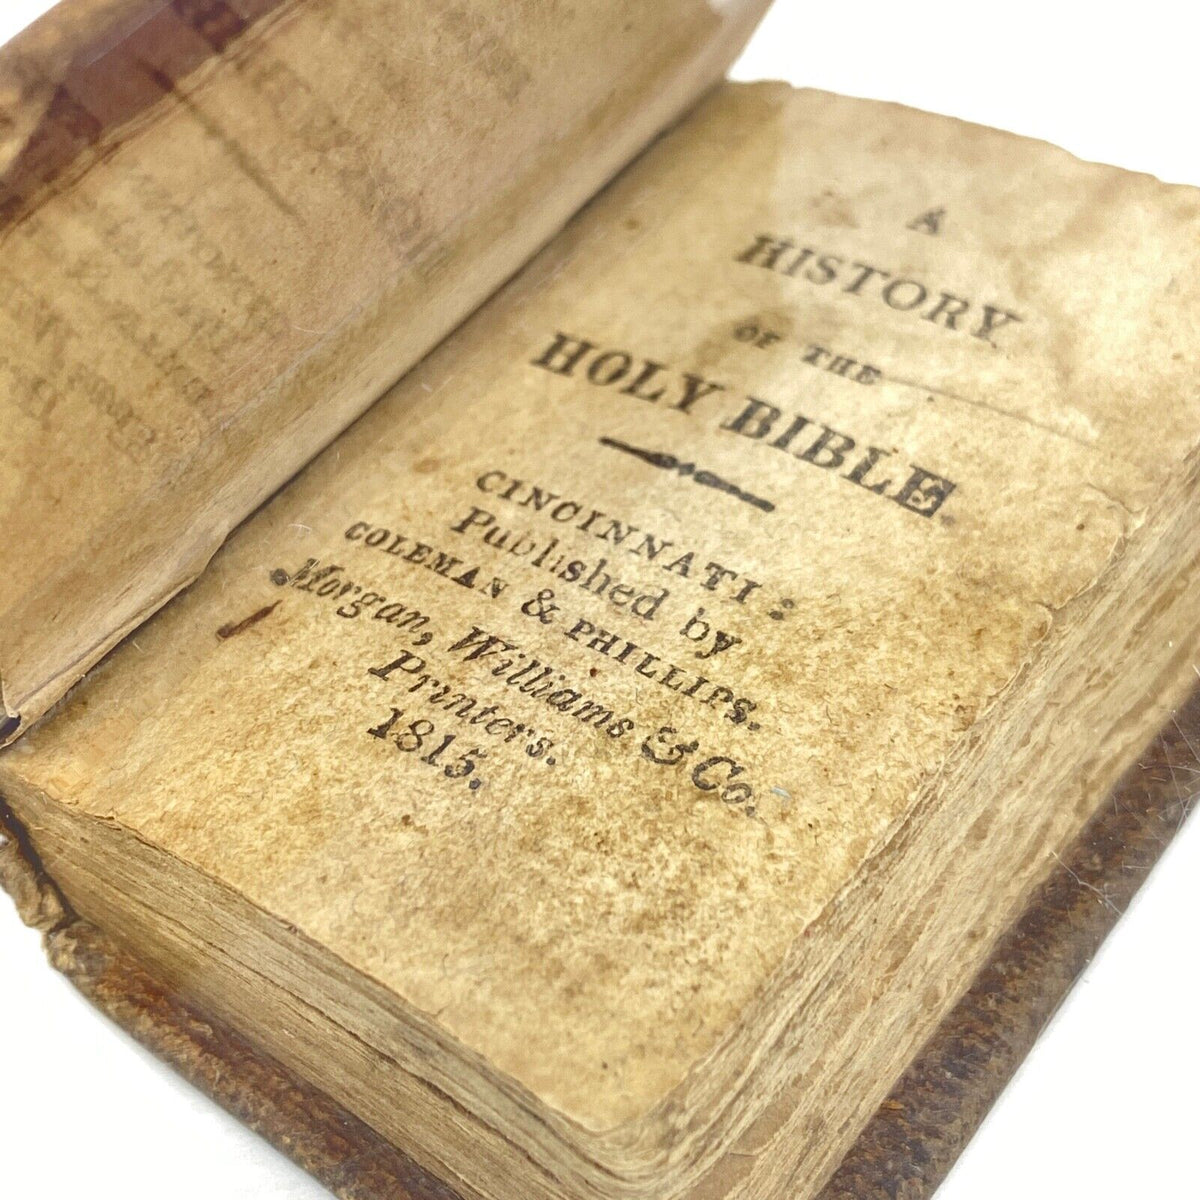 A
HISTORY
OF THE
HOLY BIBLE.
CINCINNATI:
Published by
COLEMAN & PHILLIPS.
Morgan, Williams & Co.
Printers.
1815.